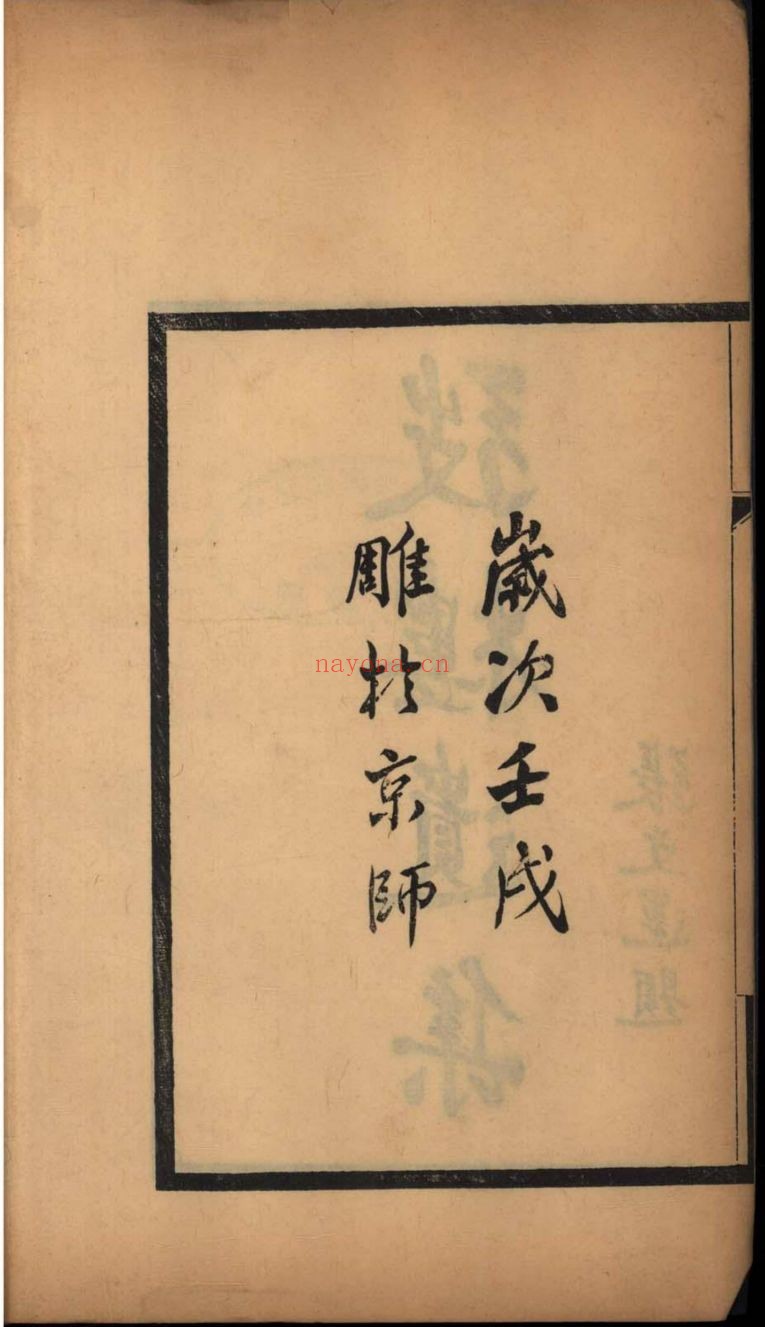 歲次壬戌
雕於京師
nayona.cn